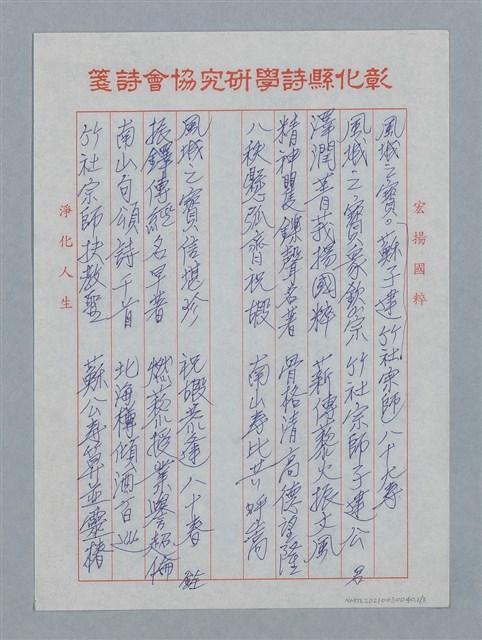 彰化縣詩學研究協會詩箋
宏揚國粹
風城之寶。蘇子建竹社宗師八十大壽
風城之寶眾欽宗 竹社宗師子建公 名
澤潤菁莪揚國粹 薪傳藜火振文風
精神矍鑠聲名著 骨格清高德望隆
八秩懸弧齊祝嘏 南山壽比共呼嵩
風城之寶信堪珍 祝嘏欣逢八十春
振鐸傳經名早著 燃藜授業譽超倫
南山句頌詩千首 北海樽傾酒百巡
竹社宗師扶教聖 蘇公壽算並靈椿
淨化人生